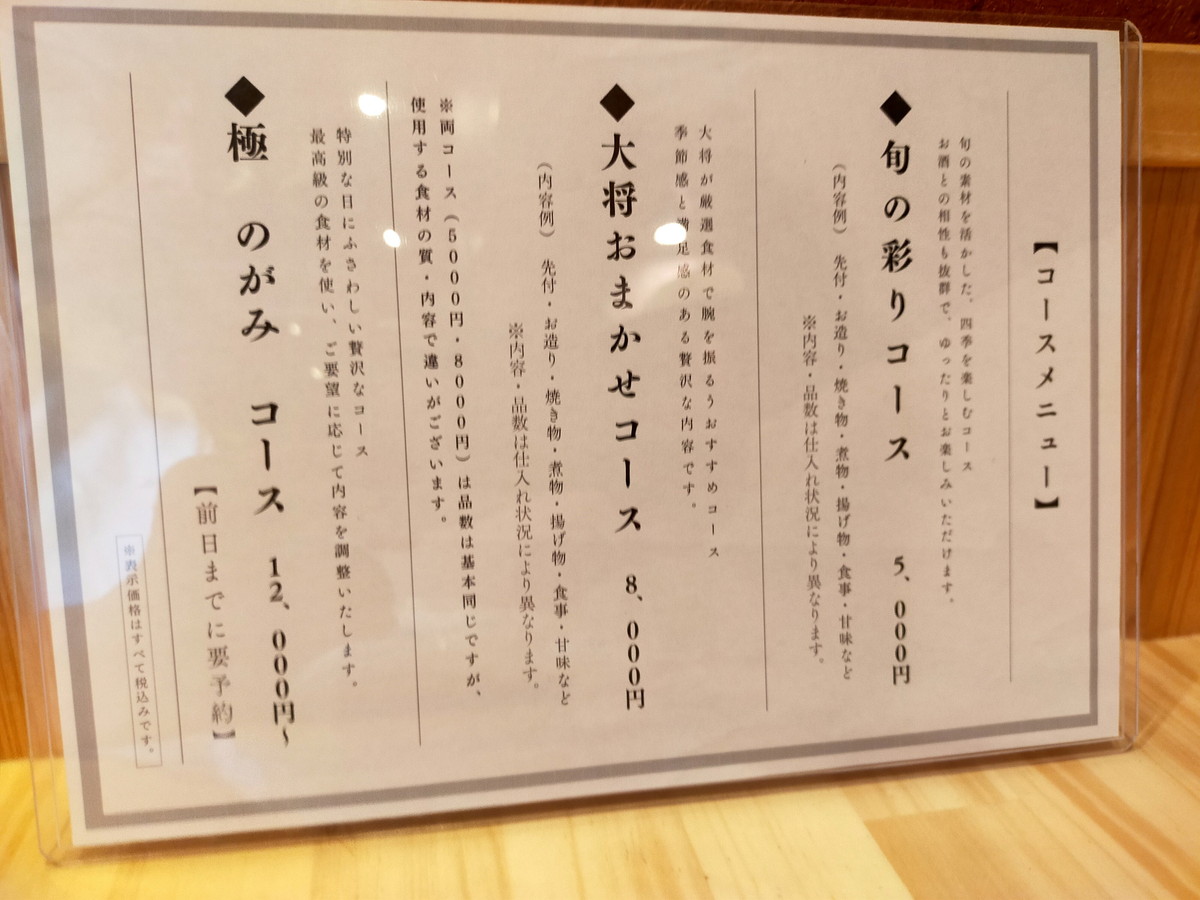 【コースメニュー】
旬の素材を活かした、四季を楽しむコース
お酒との相性も抜群で、ゆったりとお楽しみいただけます。
◆旬の彩りコース 5、000円
(内容例) 先付・お造り・焼き物・煮物・揚げ物・食事・甘味など
※内容・品数は仕入れ状況により異なります。
大将が厳選食材で腕を振るうおすすめコース
季節感と満足感のある贅沢な内容です。
◆大将おまかせコース 8、000円
(内容例) 先付・お造り・焼き物・煮物・揚げ物・食事・甘味など
※内容・品数は仕入れ状況により異なります。
※両コース(5000円・8000円)は品数は基本同じですが、
使用する食材の質・内容で違いがございます。
特別な日にふさわしい贅沢なコース
最高級の食材を使い、ご要望に応じて内容を調整いたします。
◆極 のがみ コース 12、000円~
【前日までに要予約】
※表示価格はすべて税込みです。